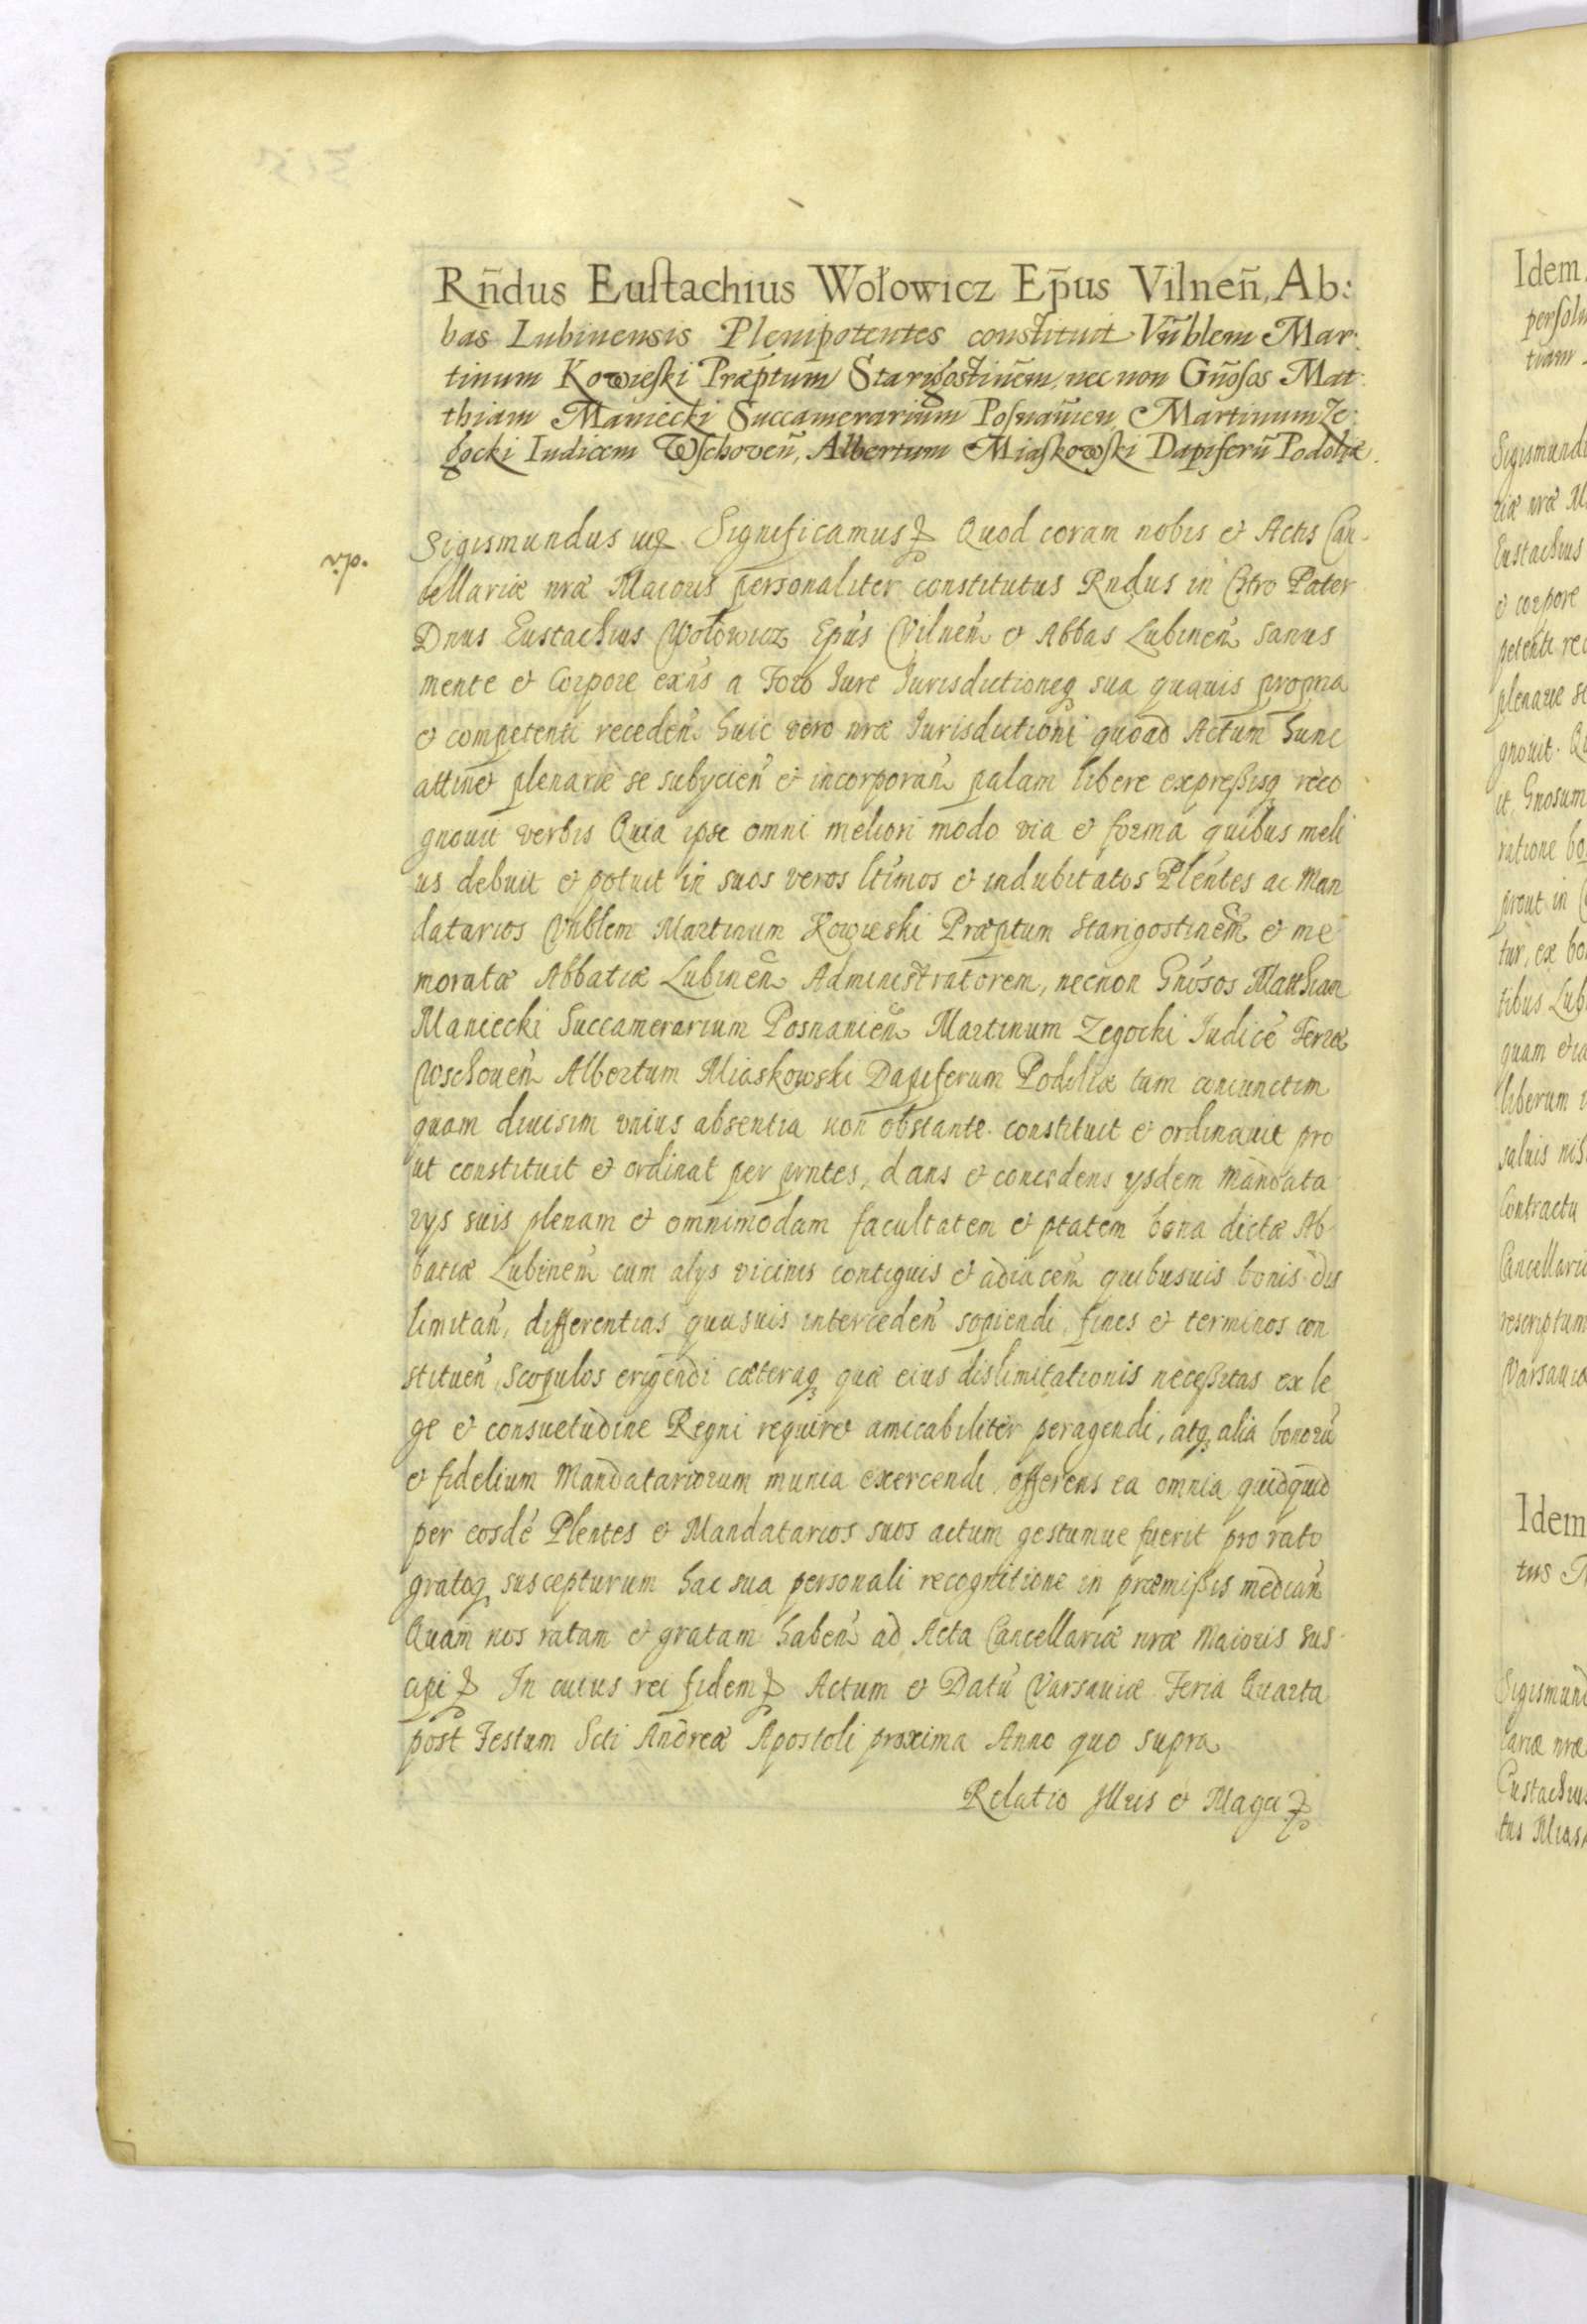 Rñdus Eustachius Wołowicz Ep̃us Vilneñ, Ab:
bas Lubinensis Plenipotentes constituit Vñblem Mar:
tinum Kowieski Præptum Starigostinem, nec non Gñosos Mat:
thiam Maniecki Succamerarium Posnanien Martinum Ze:
gocki Iudicem Wschoveñ, Albertum Miaskowski Dapiferũ Podoliæ.
Sigismundus Significamus Quod coram nobis et Actis Can
cellariæ nræ Maioris personaliter constitutus Rndus in Chro Pater
Dnus Eustachius Wołowicz Epus Vilnen et Abbas Lubinen sanus
mente et Corpore exns a Foro Iure Iurisdictioneq sua quauis propria
et competenti receden huic vero nræ Iurisdictioni quoad Actum hunc
attinet plenarie se subycien et incorporan palam libere expreßisq reco
gnouit verbis Quia ipse omni meliori modo via et forma quibus meli
us debuit et potuit in suos veros ltimos et indubitatos Plentes ac Man
datarios Vnblem Martinum Kowieski Præptum Starigostinem et me
moratæ Abbatiæ Lubinen Administratorem, necnon Gnosos Matthiam
Maniecki Succamerarium Posnanien Martinum Zegocki Iudice Terræ
Wschouen Albertum Miaskowski Dapiferum Podoliæ tam coniunctim
quam diuisim vnius absentia non obstante constituit et ordinauit pro
ut constituit et ordinat per prntes, dans et concedens ysdem Mandata
rys suis plenam et omnimodam facultatem et ptatem bona dictæ Ab
batiæ Lubinen cum alys vicinis contiguis et adiacen quibusuis bonis dis
limitan, differentias quasuis interceden sopiendi, fines et terminos con
stituen, scopulos erigendi cæteraq quæ eius dislimitationis neceßitas ex le
ge et consuetudine Regni requiret amicabiliter peragendi, atq alia bonorũ
et fidelium Mandatariorum munia exercendi, offerens ea omnia quidquid
per eosdé Plentes et Mandatarios suos actum gestumue fuerit pro rato
gratoq suscepturum hac sua personali recognitione in præmißis median
Quam nos ratam et gratam haben ad Acta Cancellariæ nræ Maioris sus
cipi In cuius rei fidem Actum et Datũ Varsauiæ Feria Quarta
post Festum Scti Andreæ Apostoli proxima Anno quo supra
Relatio Illris et Magci